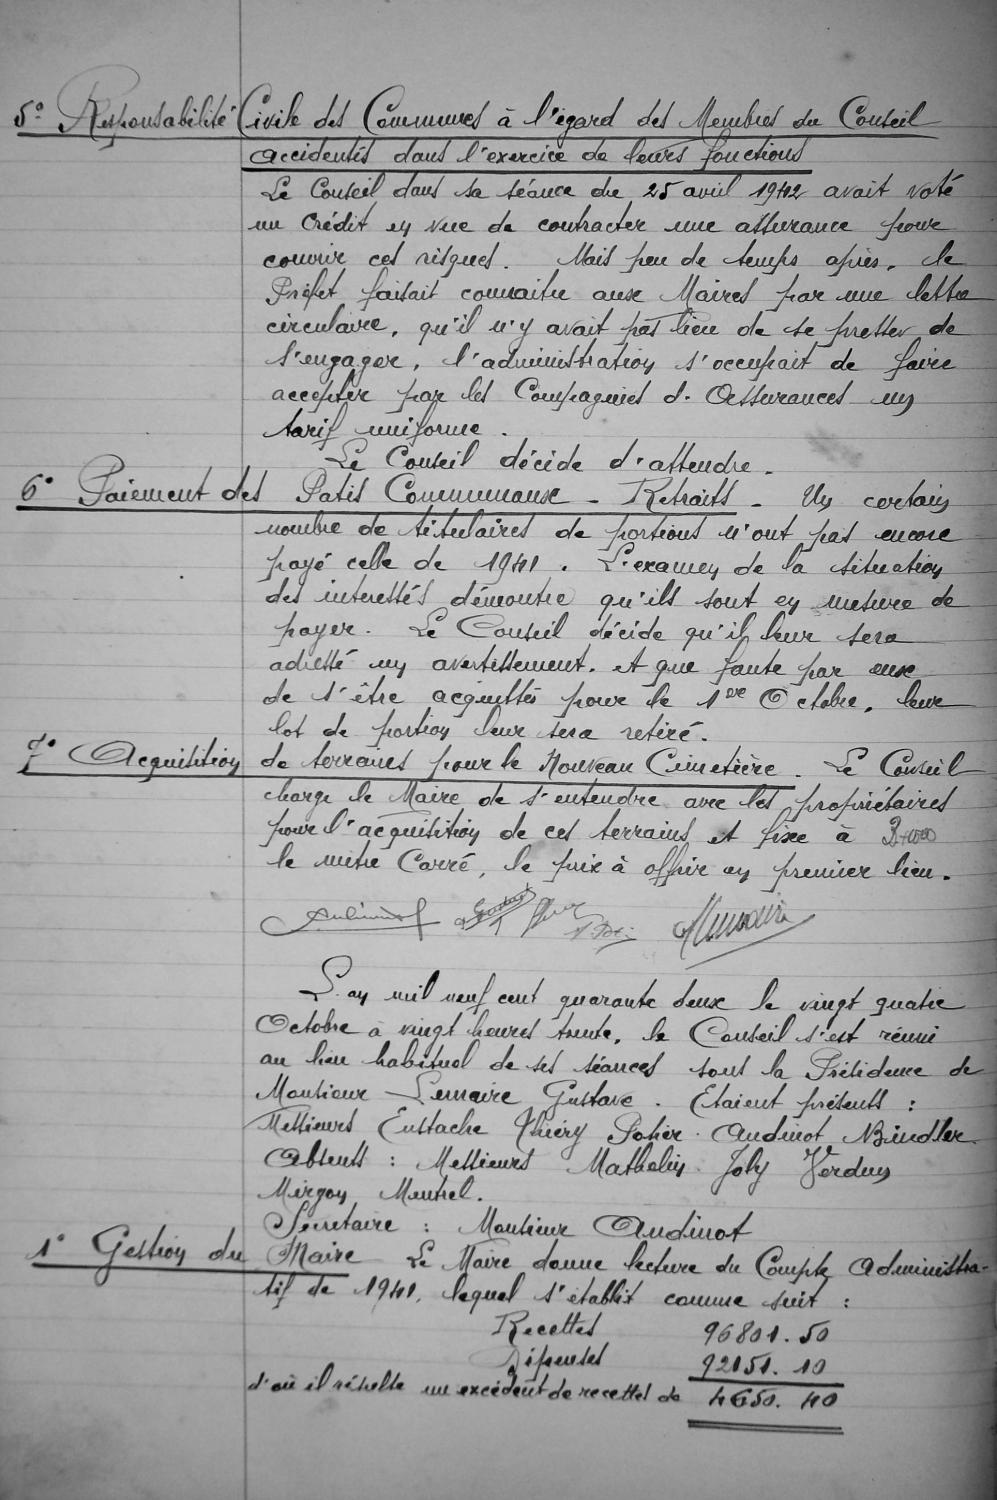 5° Responsabilité Civile des Communes à l'égard des Membres du Conseil
accidentés dans l'exercice de leurs fonctions
Le Conseil dans sa séance du 25 avril 1942 avait voté
un crédit en vue de contracter une assurance pour
couvrir ces risques. Mais peu de temps après, le
Préfet faisait connaitre aux Maires par une lettre
circulaire, qu'il n'y avait pas lieu de se presser de
s'engager, l'administration s'occupait de faire
accepter par les Compagnies d'Assurances un
tarif uniforme.
Le Conseil décide d'attendre.
6° Paiement des Patis Communaux - Retraits - Un certain
nombre de titulaires de portions n'ont pas encore
payé celle de 1941. L'examen de la situation
des interessés démontre qu'ils sont en mesure de
payer. Le Conseil décide qu'il leur sera
adressé un avertissement, et que faute par eux
de s'être acquittés pour le 1er Octobre, leur
lot de portion leur sera retiré.
7° Acquisition de terrains pour le Nouveau Cimetière. Le Conseil
charge le Maire de s'entendre avec les propriétaires
pour l'acquisition de ces terrains et fixe à
le mètre Carré, le prix à offrir en premier lieu.
L'an mil neuf cent quarante deux le vingt quatre
Octobre à vingt heures trente, le Conseil s'est réuni
au lieu habituel de ses séances sous la Présidence de
Monsieur Lemaire Gustave. Etaient présents :
Messieurs Eustache Thiéry Potier Audinot Bindler
Absents : Messieurs Mathelin Joly Verdun
Mirgon Meutrel.
Secrétaire : Monsieur Audinot
1° Gestion du Maire Le Maire donne lecture du Compte Administra-
tif de 1941, lequel s'établit comme suit :
Recettes 96801.50
Dépenses 92151.10
d'où il résulte un excédent de recettes de 4650.40